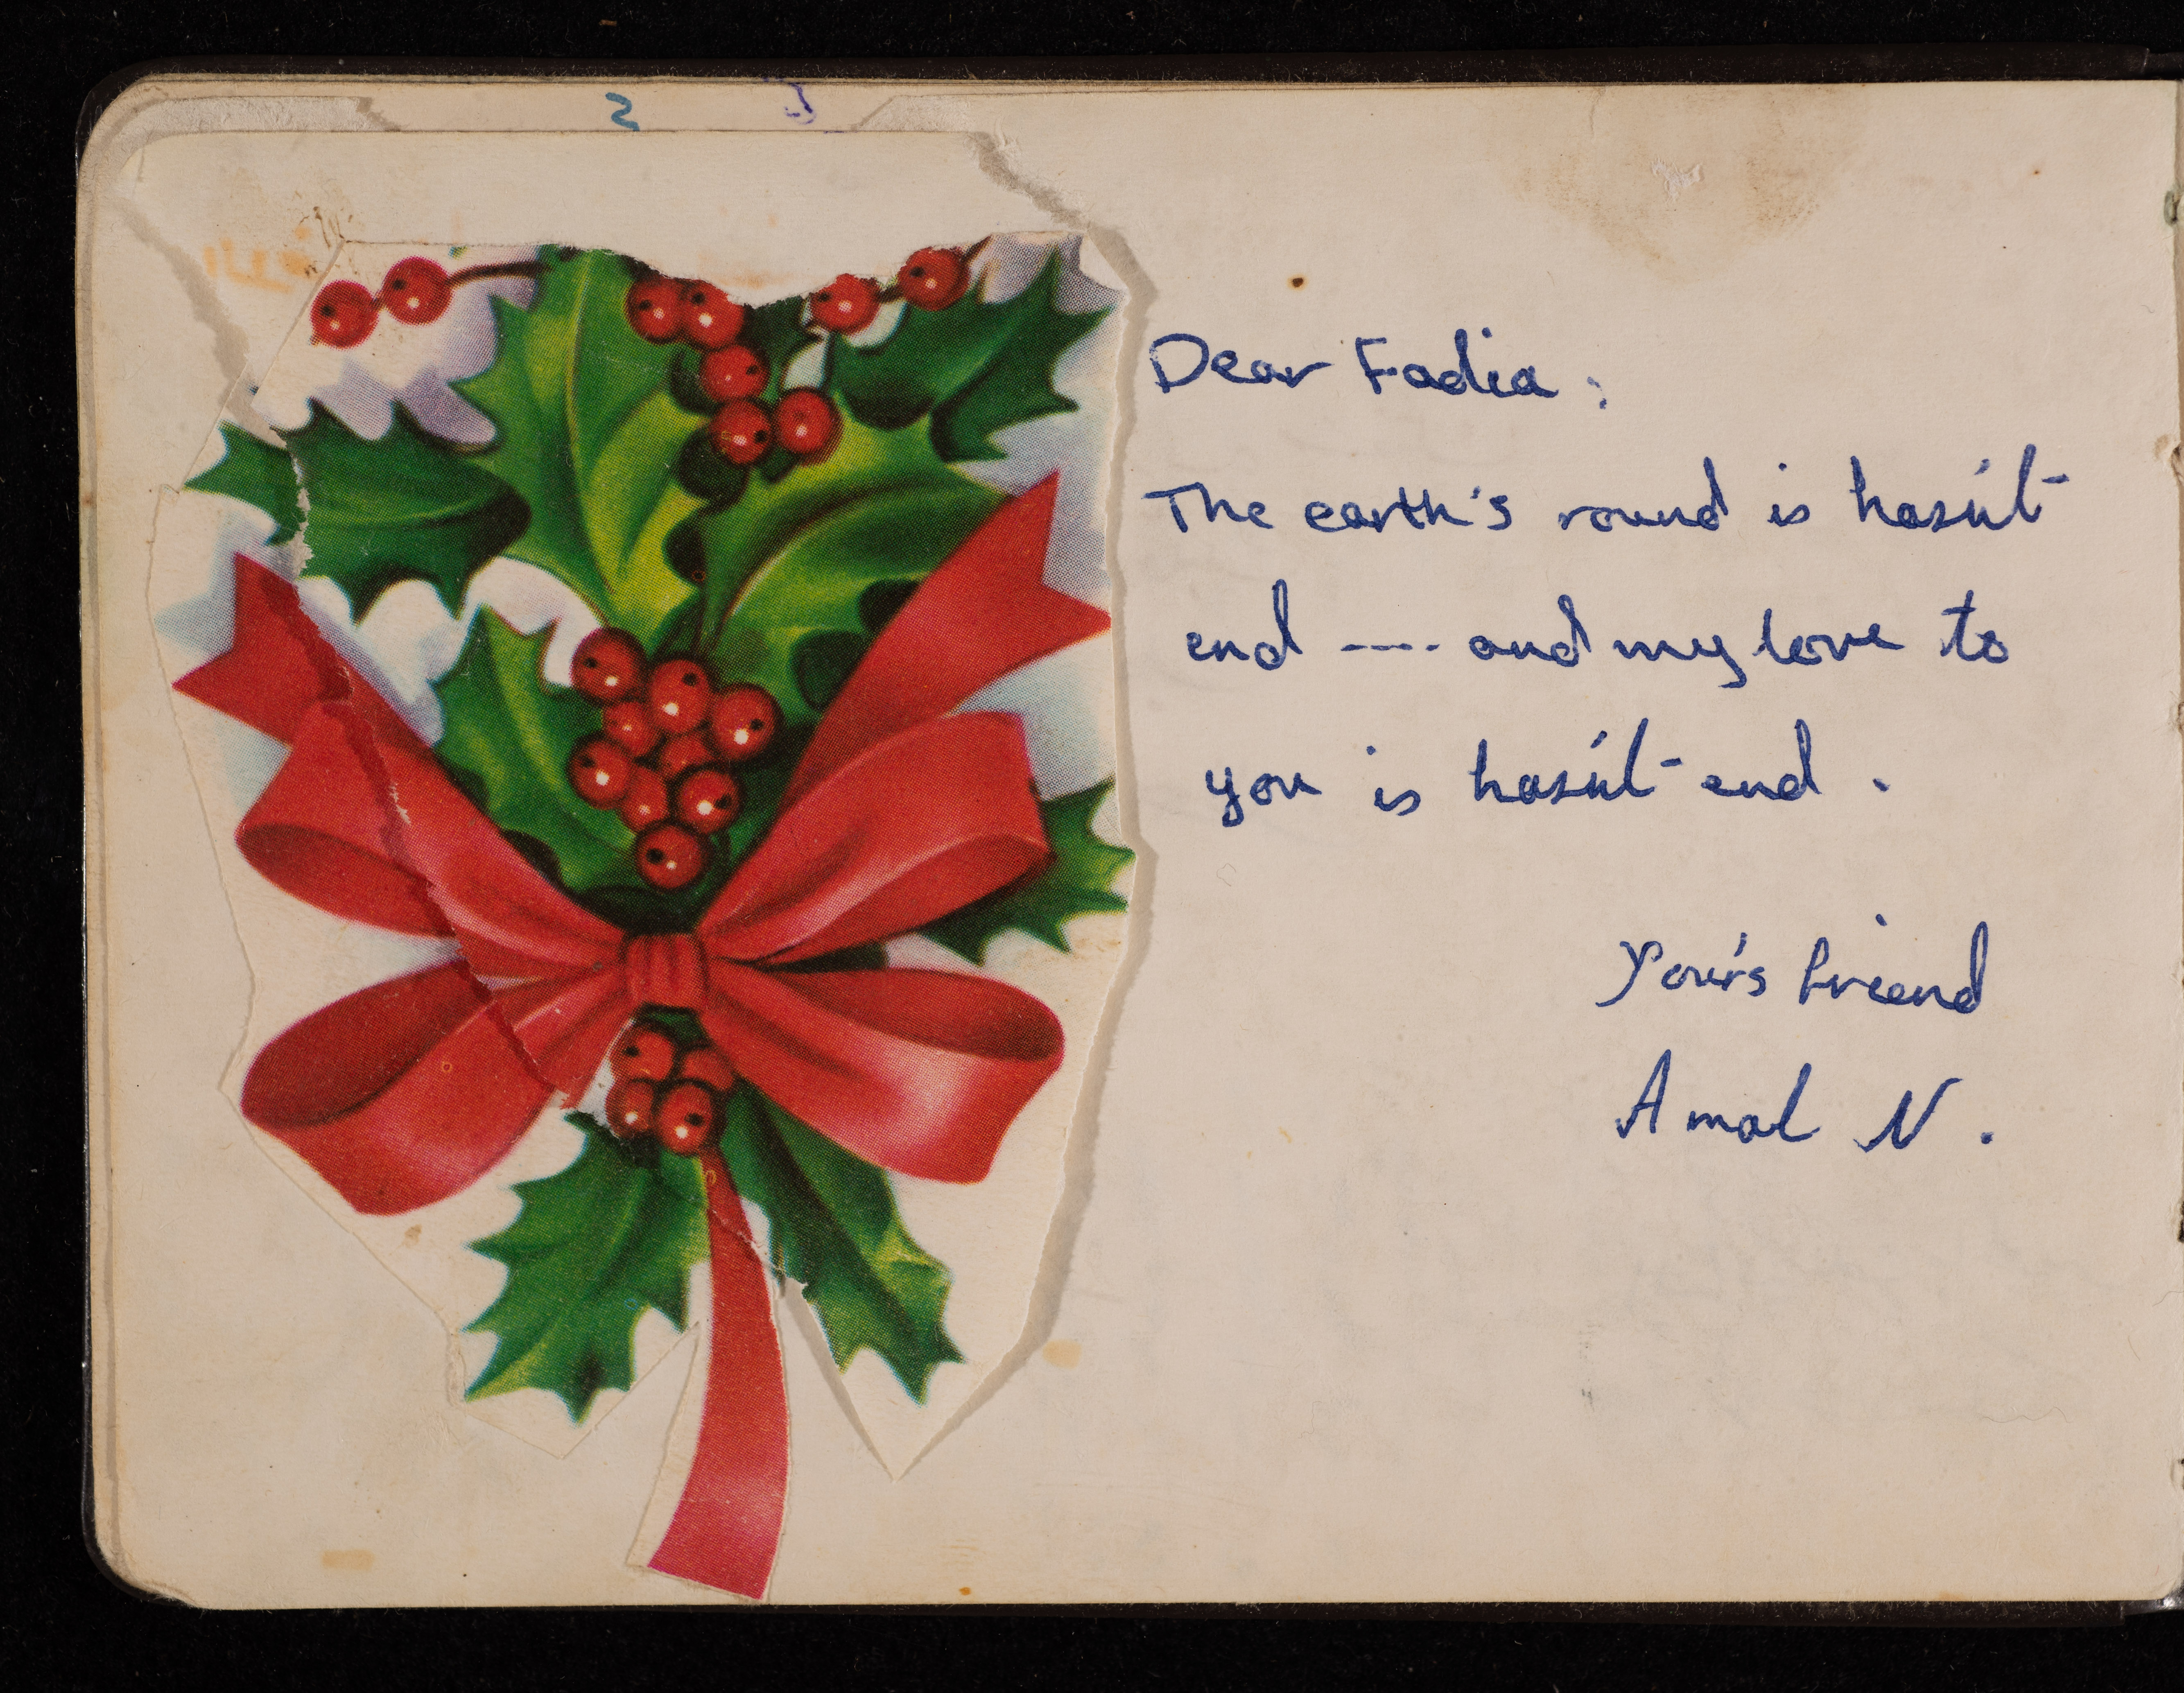 Dear Fadia :
The earth's round is hasn't
end ---- and my love to
you is hasn't end .
Your's friend
Amal N .